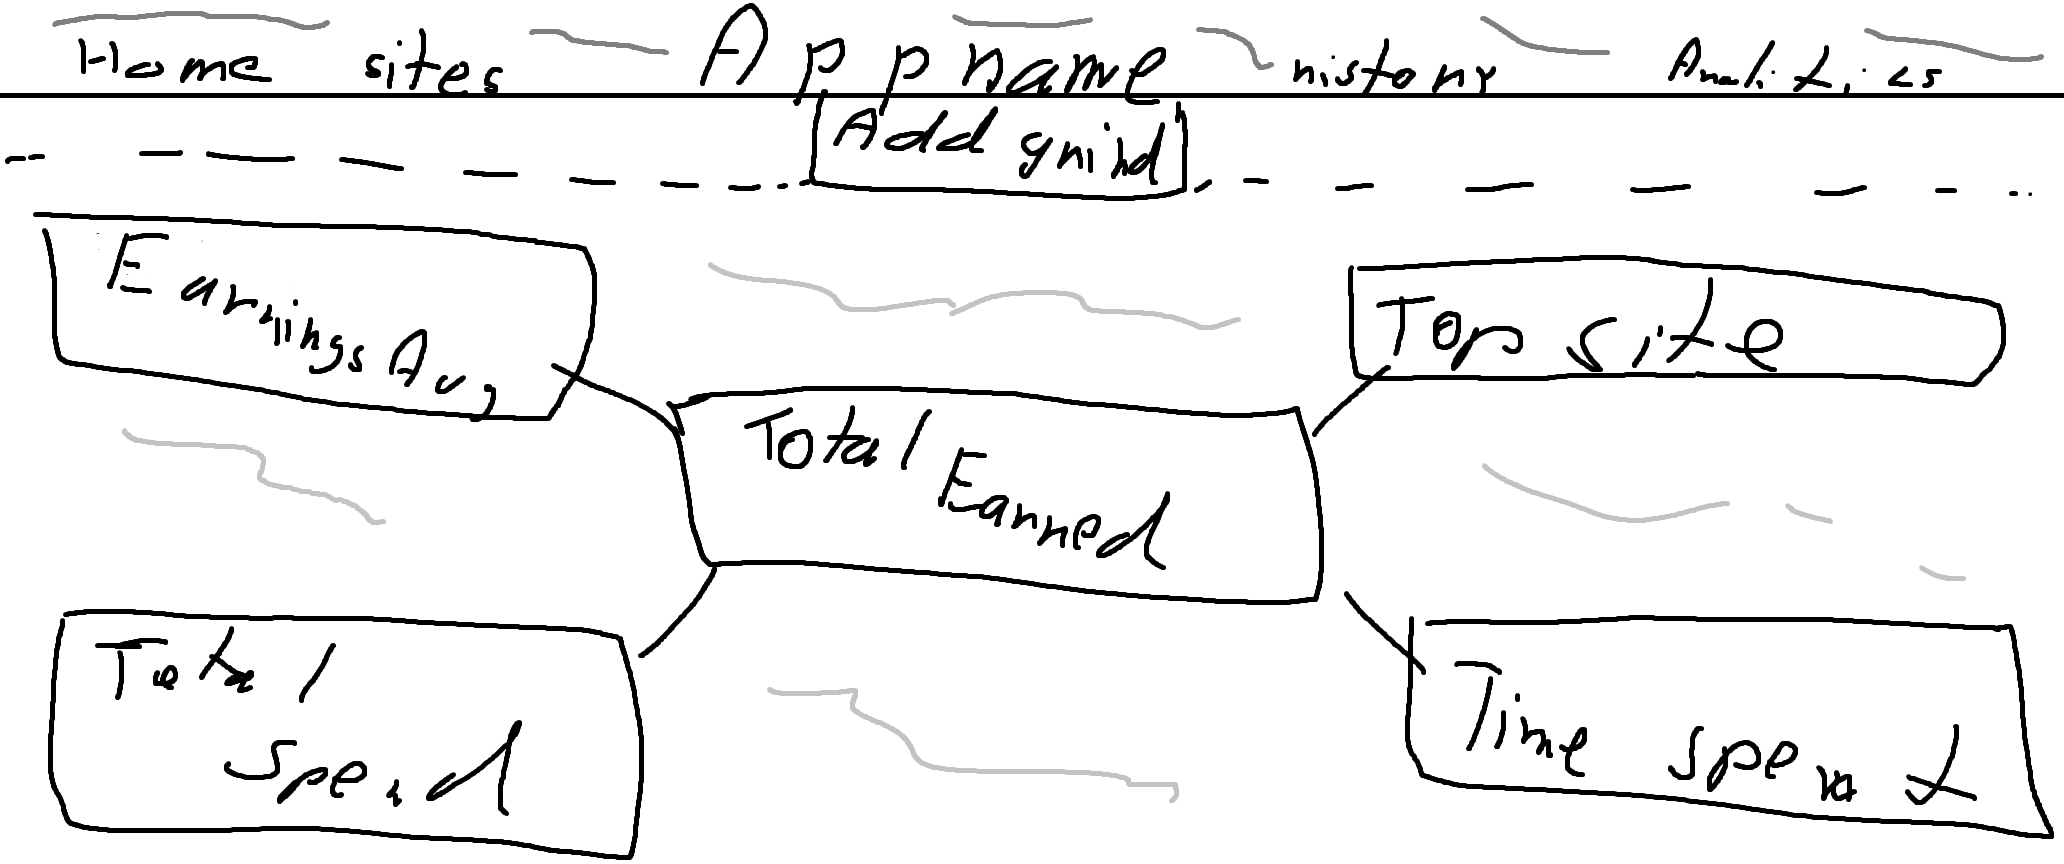 Home sites App name history Analitics
Add grind
Earnings Avg
Top site
Total
Earned
Total
Spend
Time spent